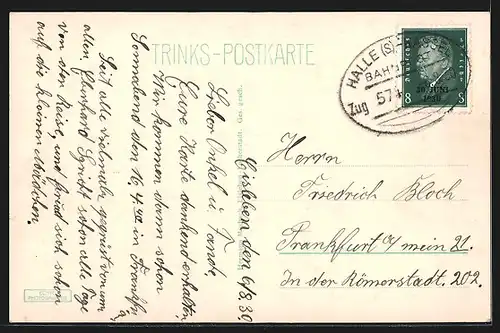 TRINKS-POSTKARTE
HALLE (S)-
BAHNPOST
Zug 574
Deutsches Reich
30. JUNI
1930
8 8
Eisleben, den 6/8.30
Lieber Onkel u. Tante,
Eure Karte dankend erhalten.
Wir kommen dann schon
Sonnabend den 16.  in Frankfu
Seit alle vielmals gegrüßt von um
allen. Eberhard spricht schon alle Tage
von der Reise, und freud sich schon
auf die kleinen Mädchen.
Herrn
Friedrich Bloch
Frankfurt a/Mein 21.
In der Römerstadt. 202.